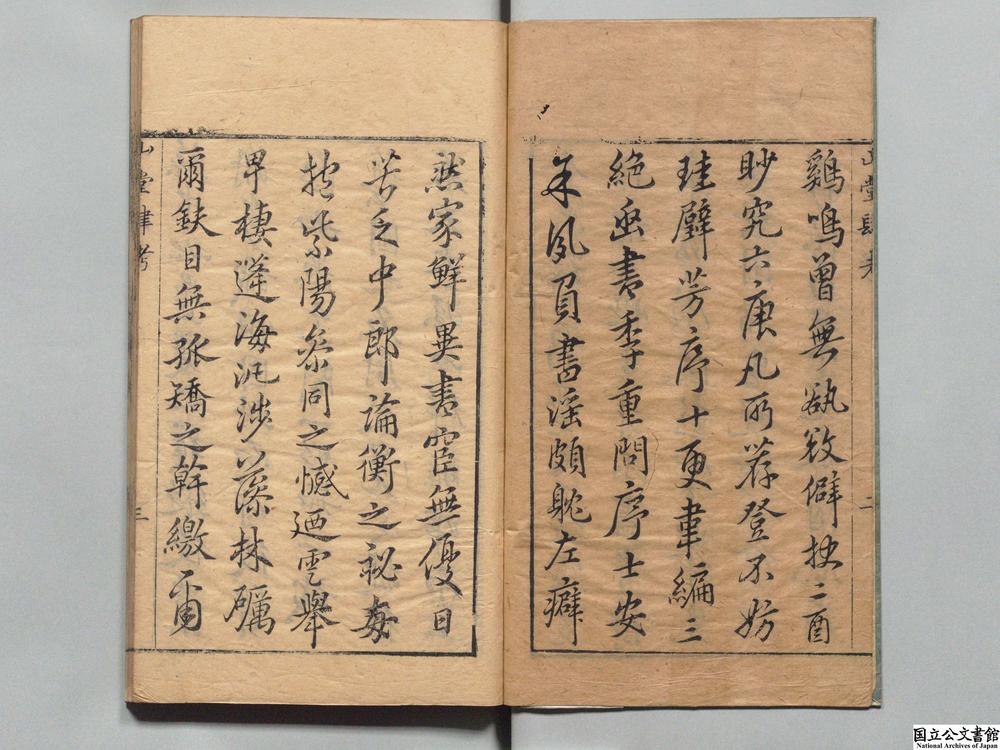 鷄鳴曾無欲敚僻抉二酉
眇究六庚凡所荐登不妨
珪璧芳序十更韋編三
絶函書季重問序士安
余夙負書淫頗眈左癖
然家鮮異書宦無優日
苦乏中郎論衡之祕每
抱紫陽參同之憾迺雲舉
早棲蓬海汎涉藻林礪
爾鈇目無孤矯之幹繳
山堂肆考
三
国立公文書館
National Archives of Japan